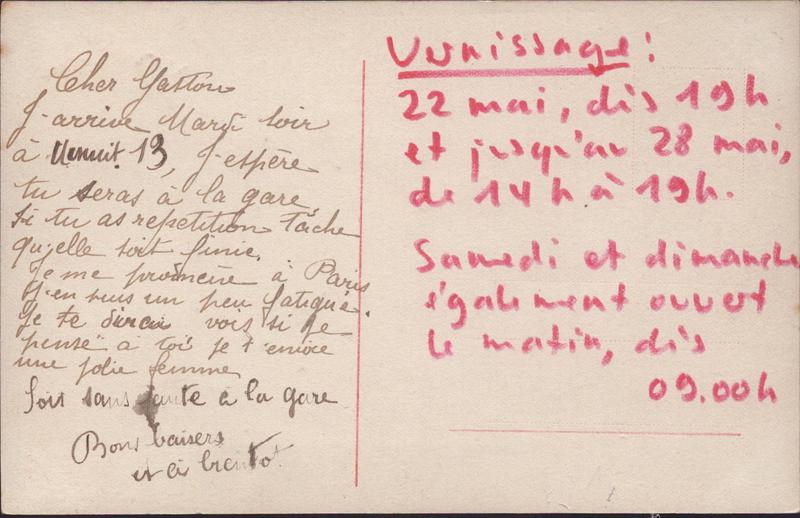 Cher Gaston
J'arrive Mardi soir
à Menuit 13, J'espère
tu seras à la gare,
Si tu as repetition tâche
qu'elle soit finie.
Je me promène à Paris
J'en suis un peu fatigué.
Je te dirai vois si je
pense à toi je t'envoie
une jolie femme
Soit sans faute à la gare
Bons baisers
et à bientot.
Vernissage:
22 mai, dès 19h
et jusqu'au 28 mai,
de 14h à 19h.
Samedi et dimanche
également ouvert
le matin, dès
09.00h